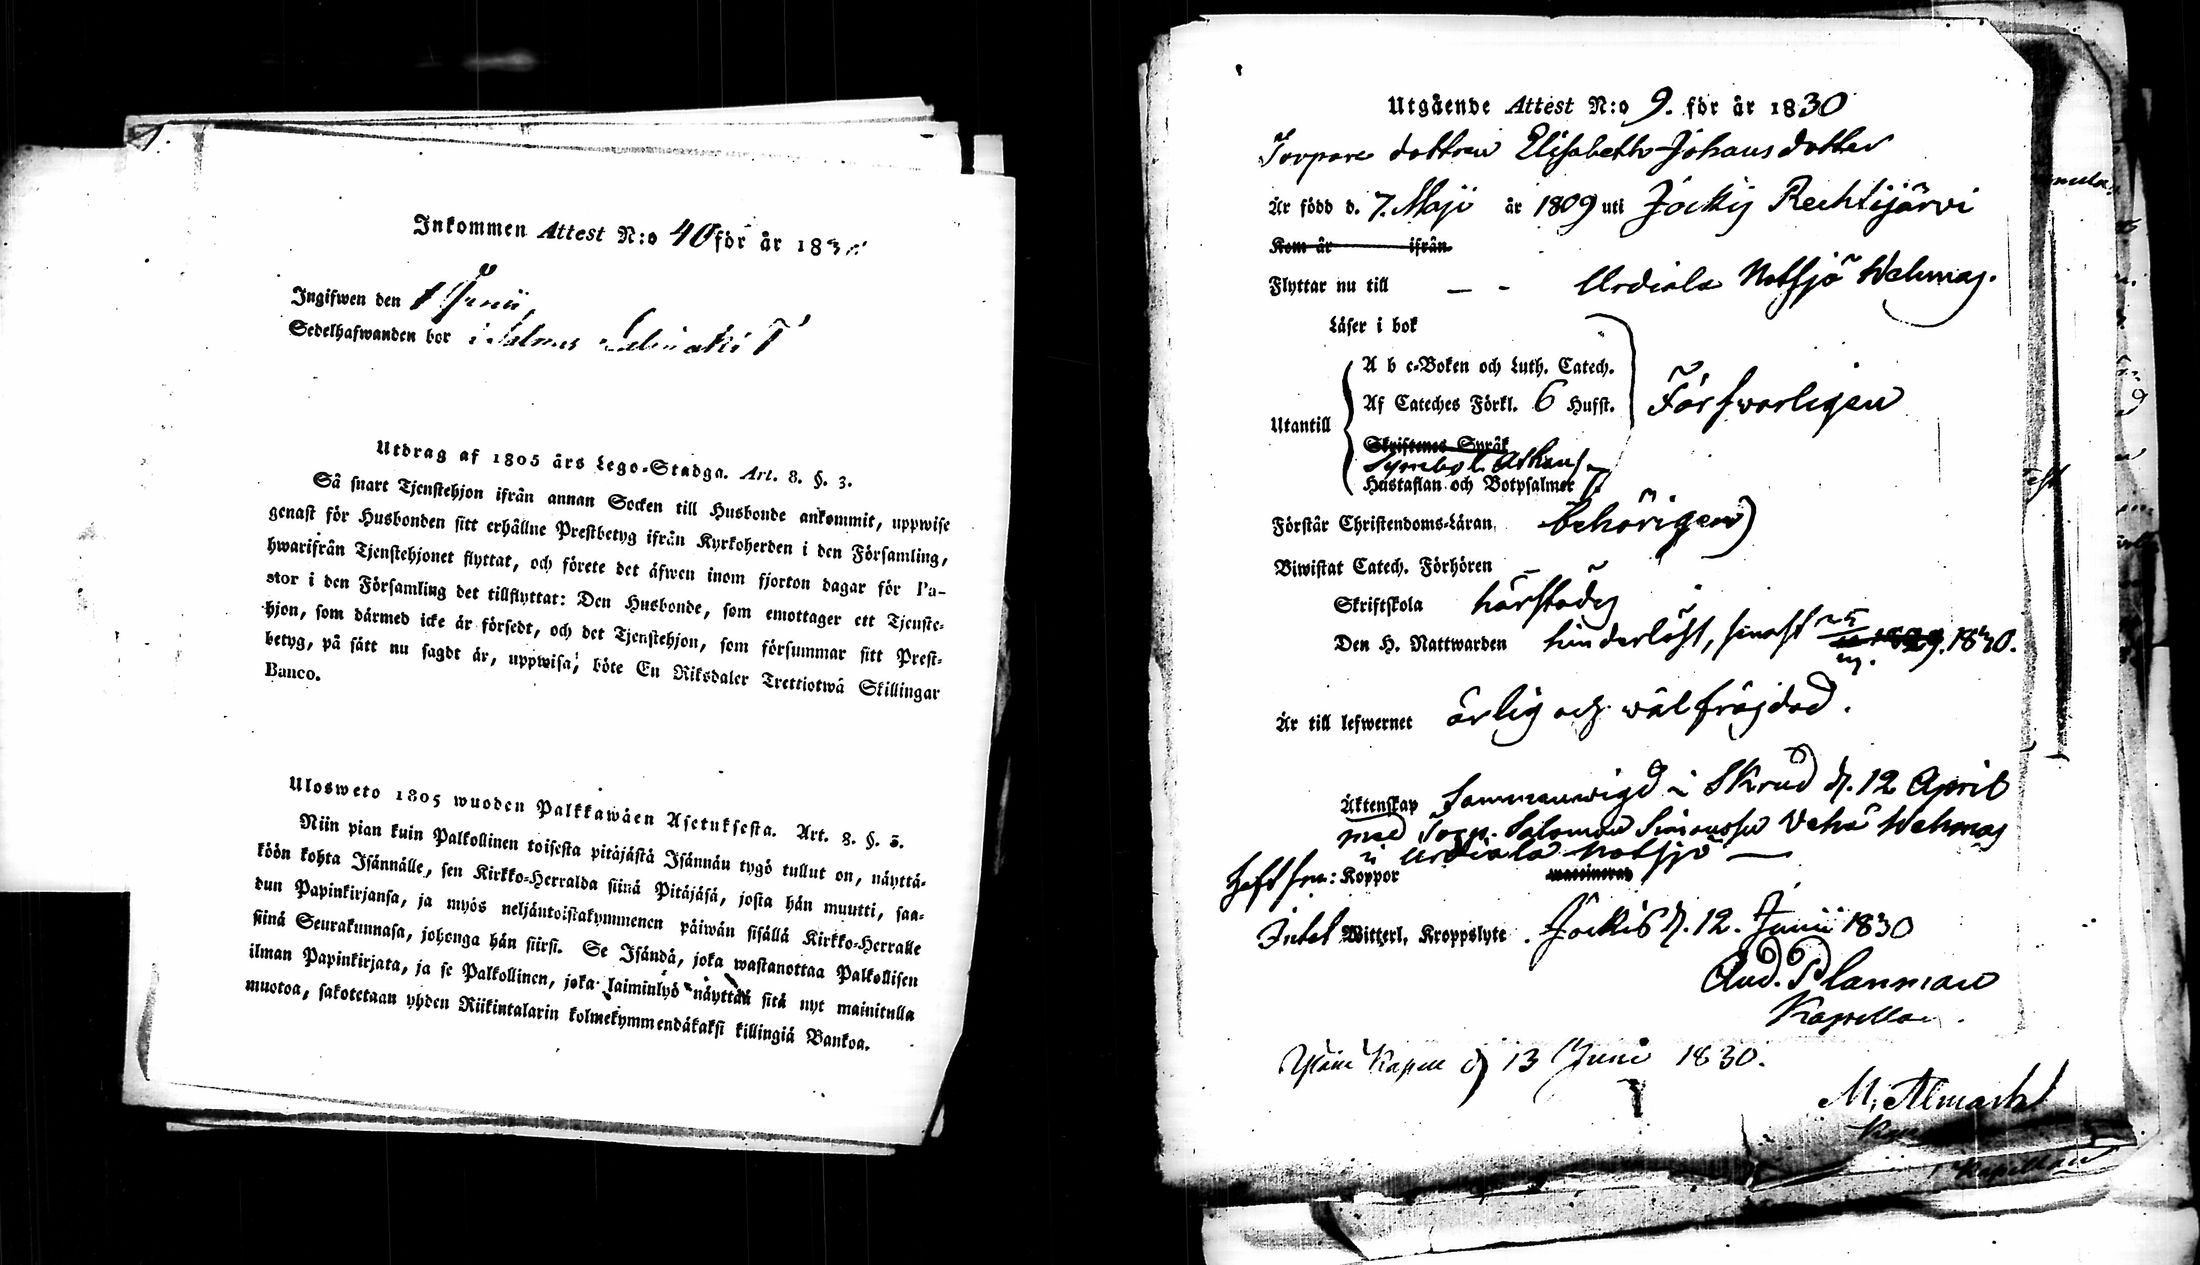 Inkommen Attest N:o 40 för år 183
Ingifwen den 1 Junii
Sedelhafwanden bor i
Utdrag af 1805 års Lego-Stadga. Art. 8. §. 3.
Så snart Tjenstehjon ifrån annan Socken till Husbonde ankommit, uppwise
genast för Husbonden sitt erhållne Prestbetyg ifrån Kyrkoherden i den Församling,
hwarifrån Tjenstehjonet flyttat, och förete det äfwen inom fjorton dagar för Pa-
stor i den Församling det tillflyttat: Den Husbonde, som emottager ett Tjenste-
hjon, som därmed icke är försedt, och det Tjenstehjon, som försummar sitt Prest-
betyg, på sätt nu sagdt är, uppwisa, böte En Riksdaler Trettiotwå Skillingar
Banco.
Ulosweto 1805 wuoden Palkkawäen Asetuksesta. Art. 8. §. 3.
Niin pian kuin Palkollinen toisesta pitäjästä Isännän tygö tullut on, näyttä-
köön kohta Isännälle, sen Kirkko-Herralda siinä Pitäjäsä, josta hän muutti, saa-
dun Papinkirjansa, ja myös neljäntoistakymmenen päiwän sisällä Kirkko-Herralle
siinä Seurakunnasa, johonga hän siirsi. Se Isändä, joka wastanottaa Palkollisen
ilman Papinkirjata, ja se Palkollinen, joka laiminlyö näyttää sitä nyt mainitulla
muotoa, sakotetaan yhden Riikintalarin kolmekymmendäkaksi killingiä Bankoa.
Utgående Attest N:o 9. för år 1830
Torpare dottren Elisabeth Johansdotter
Är född d. 7. Maji år 1809 uti Jockis Rechtijärvi
Kom år ifrån
Flyttar nu till – - Urdiala Notsjö Wehmas.
Läser i bok
Utantill
A b c-Boken och Luth. Catech.
Af Cateches Förkl. 6 Hufst. Försvarligen
Skriftenes Språk
Symbol. Athanas.
Hustaflan och Botpsalmer
Förstår Christendoms-Läran behörigen
Biwistat Catech. Förhören
Skriftskola härstädes
Den H. Nattwarden hinderlöst, sinast 25 1829. 1830.
Är till lefwernet ärlig och välfräjdad.
Äktenskap Sammanvigd i Skrud d. 12 April
med Salomon Simonsson Wehmas
i Urdiala Notsjö
Haft Koppor
Intet Witterl. Kroppslyte. Jockis d. 12. Junii 1830
And. Planman
Kapellan.
Kapell d 13 Juni 1830.
M. Almark
Kapellan